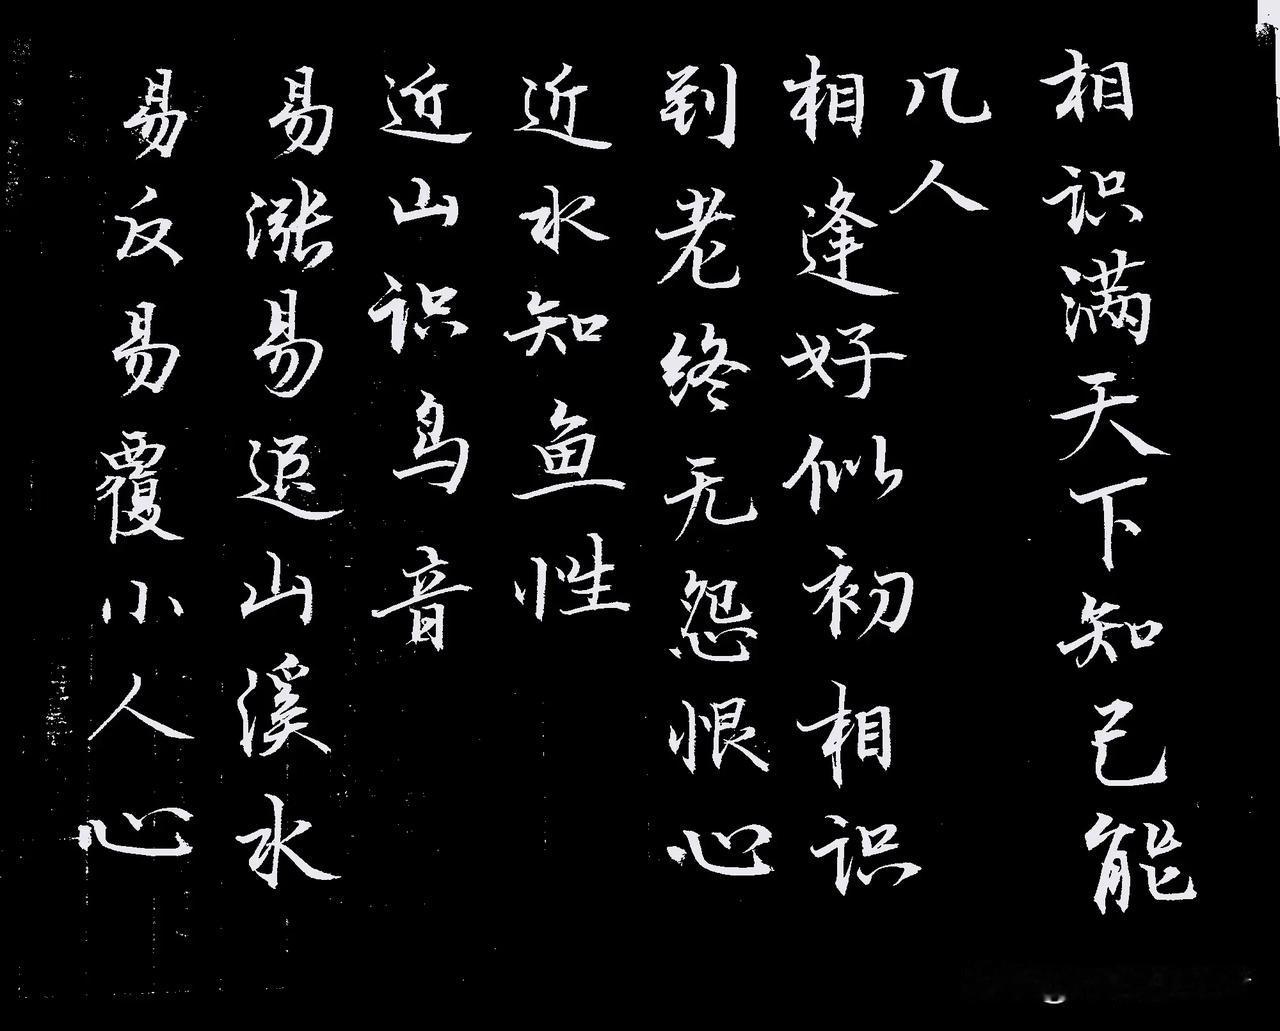 相识满天下知己能
几人
相逢好似初相识
到老终无怨恨心
近水知鱼性
近山识鸟音
易涨易退山溪水
易反易覆小人心